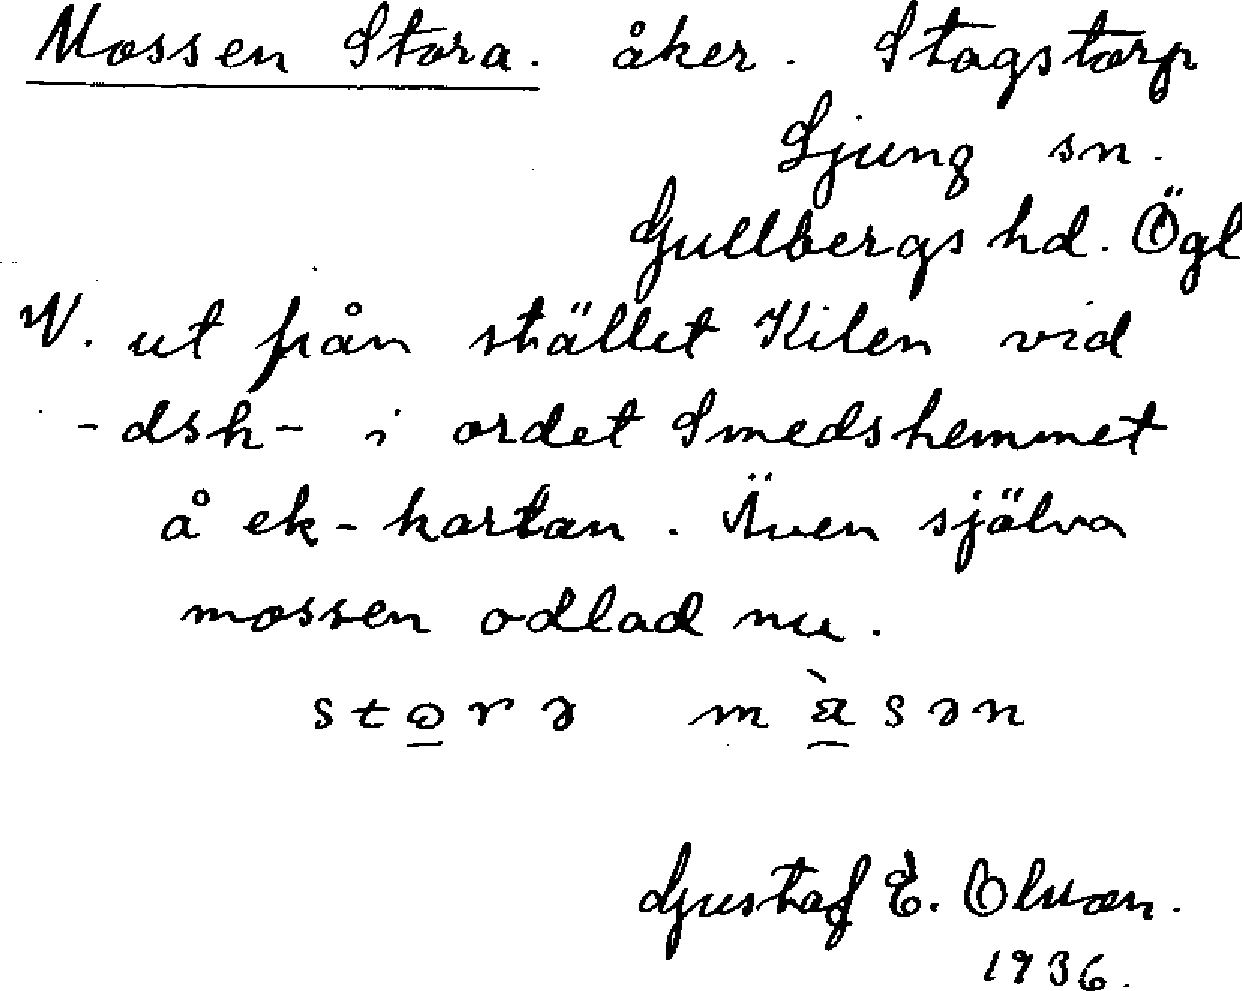 Mossen Stora. åker. Stagstorp
Ljung sn.
Gullbergs hd. Ögl
V. ut från stället Kilen vid
-dsh- i ordet Smedshemmet
å ek-kartan. Även själva
mossen odlad nu.
Gustaf E. Olsson.
1936.